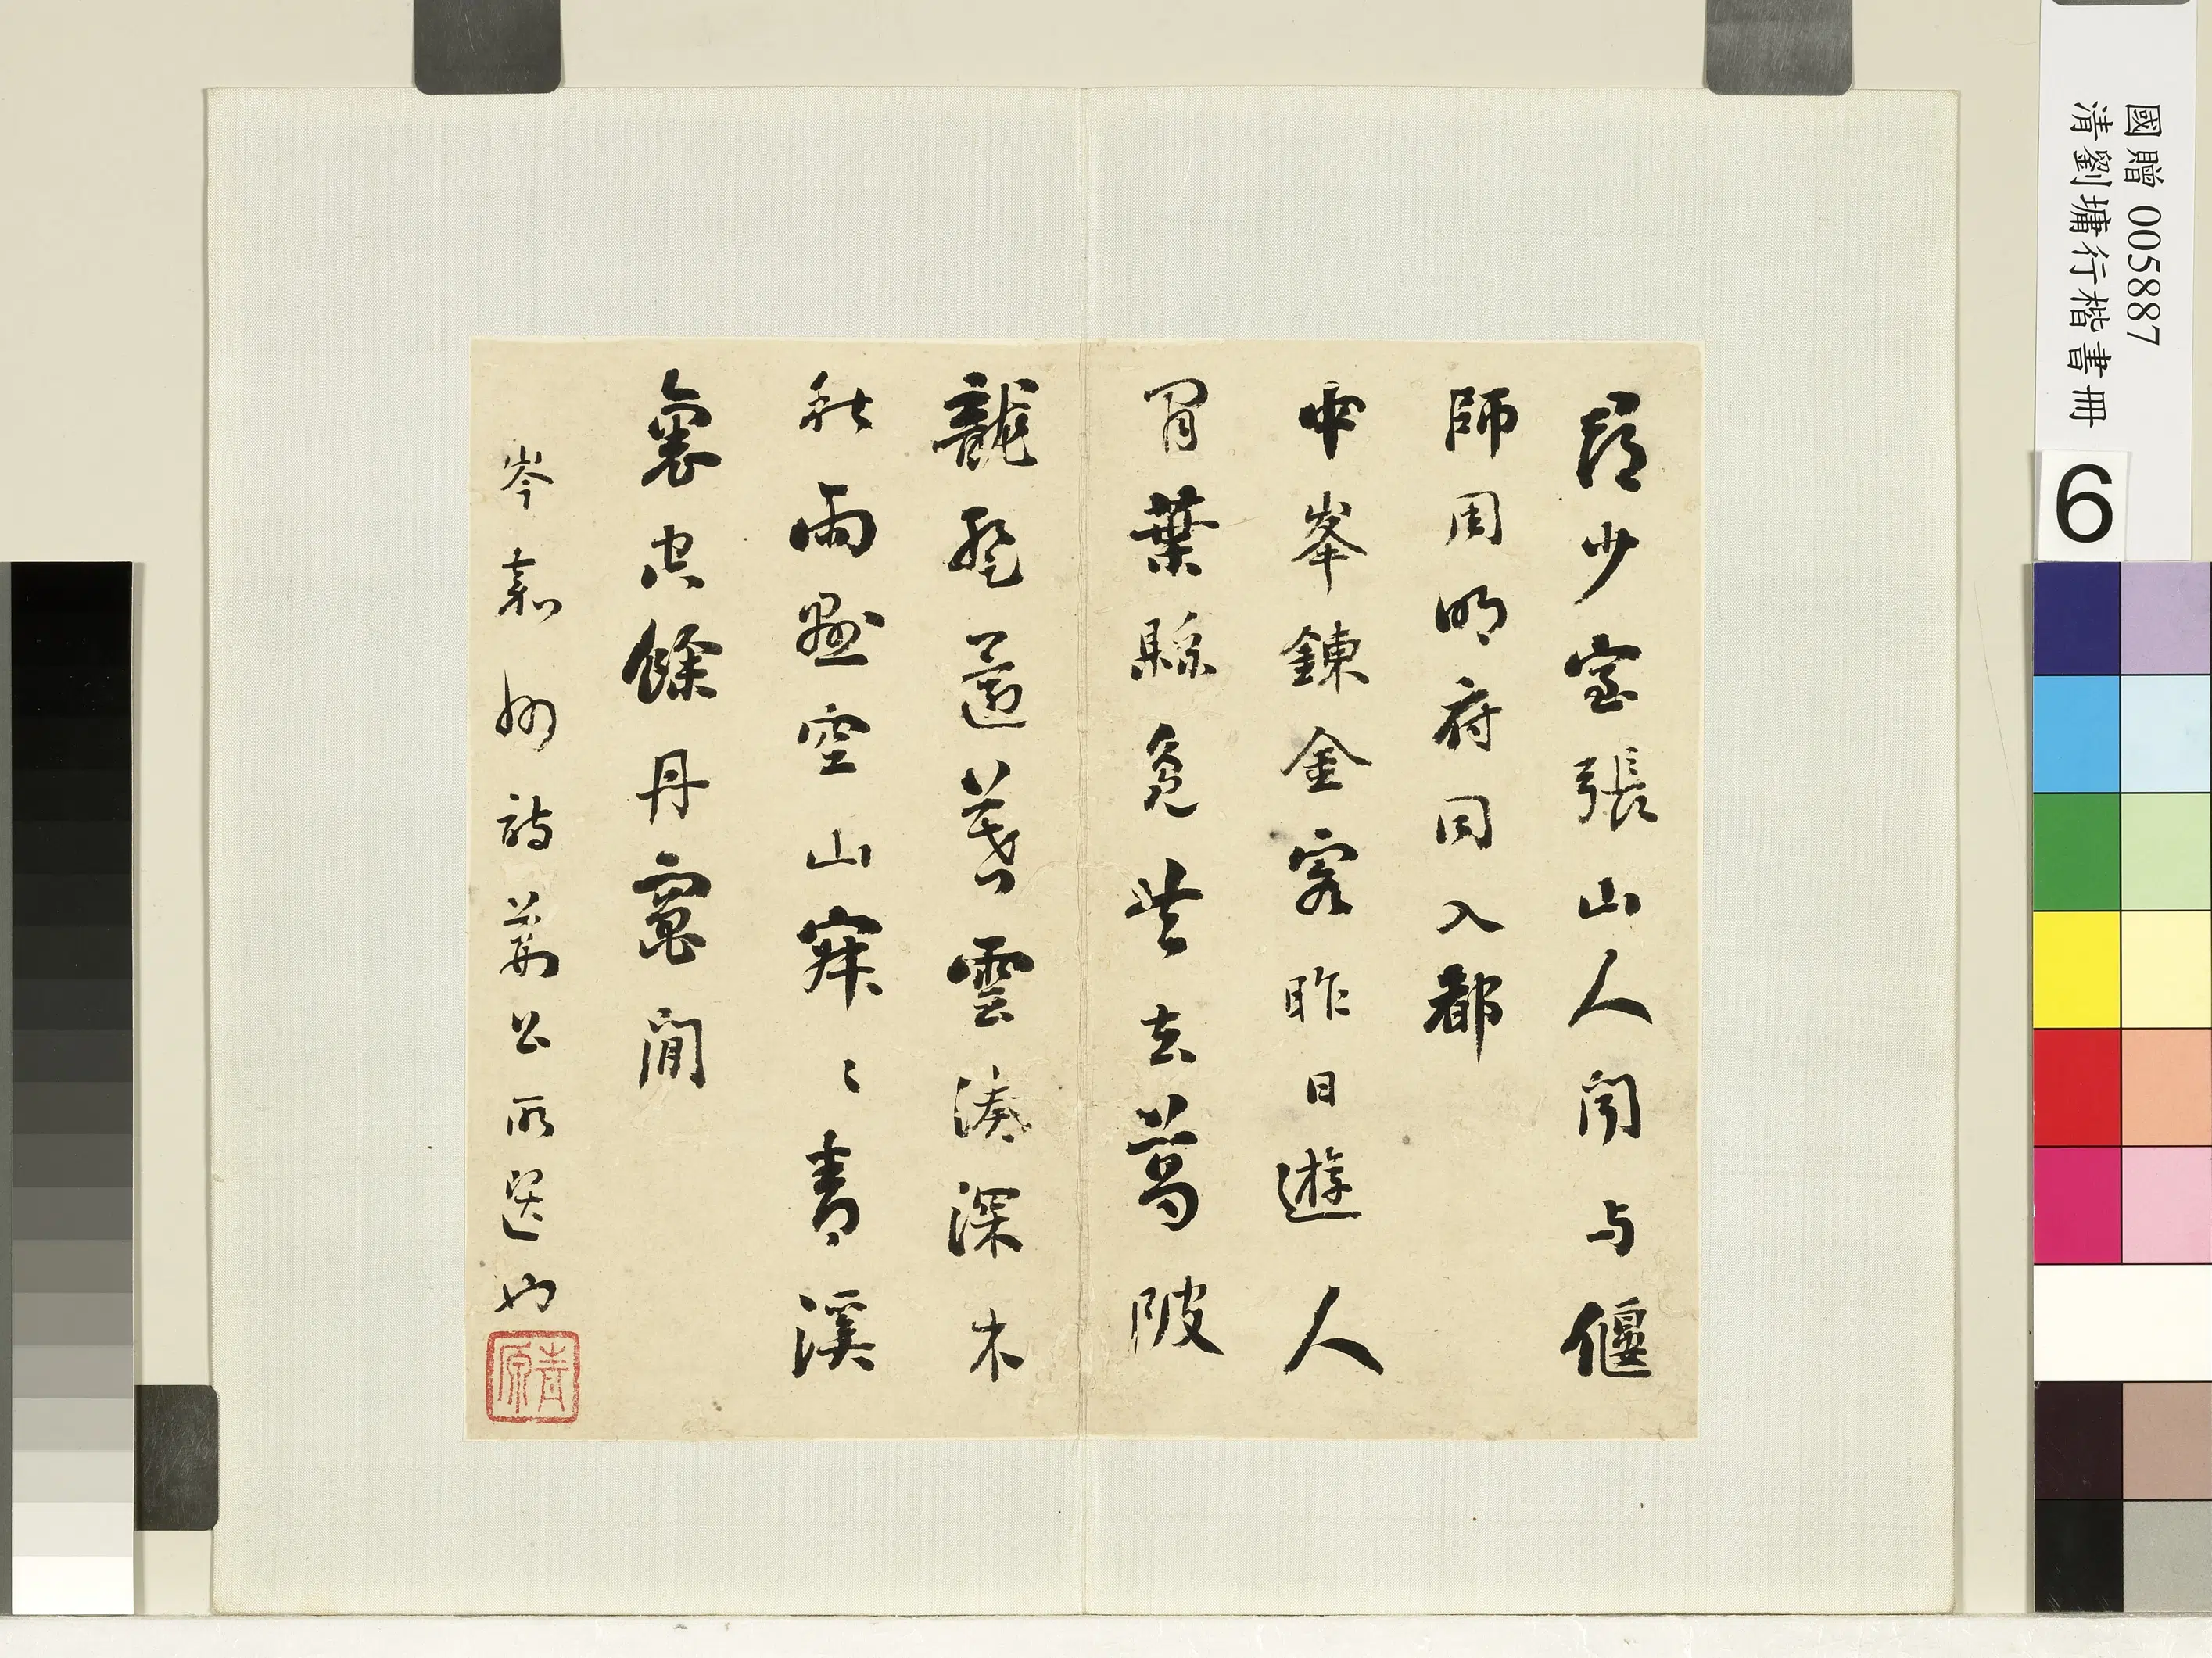 國贈 005887
清劉墉行楷書冊
6
尋少室張山人聞与偃
師周明府同入都
中峯鍊金客昨日遊人
間葉縣鳧共去葛陂
龍暫還暮雲湊深木
秋雨懸空山寂〻青溪
裏空餘丹竈閒
岑嘉州詩荊公所選也
青原